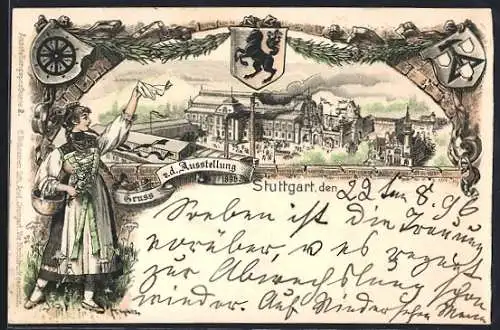 Ausstellungspostkarte 2.
Gruss
z.d. Ausstellung
1896
Stuttgart, den 22ten 8. 96
Soeben ist die Trauung
vorüber, u es regnet
zur Abwechslung schon
wieder. Auf Wiedersehen